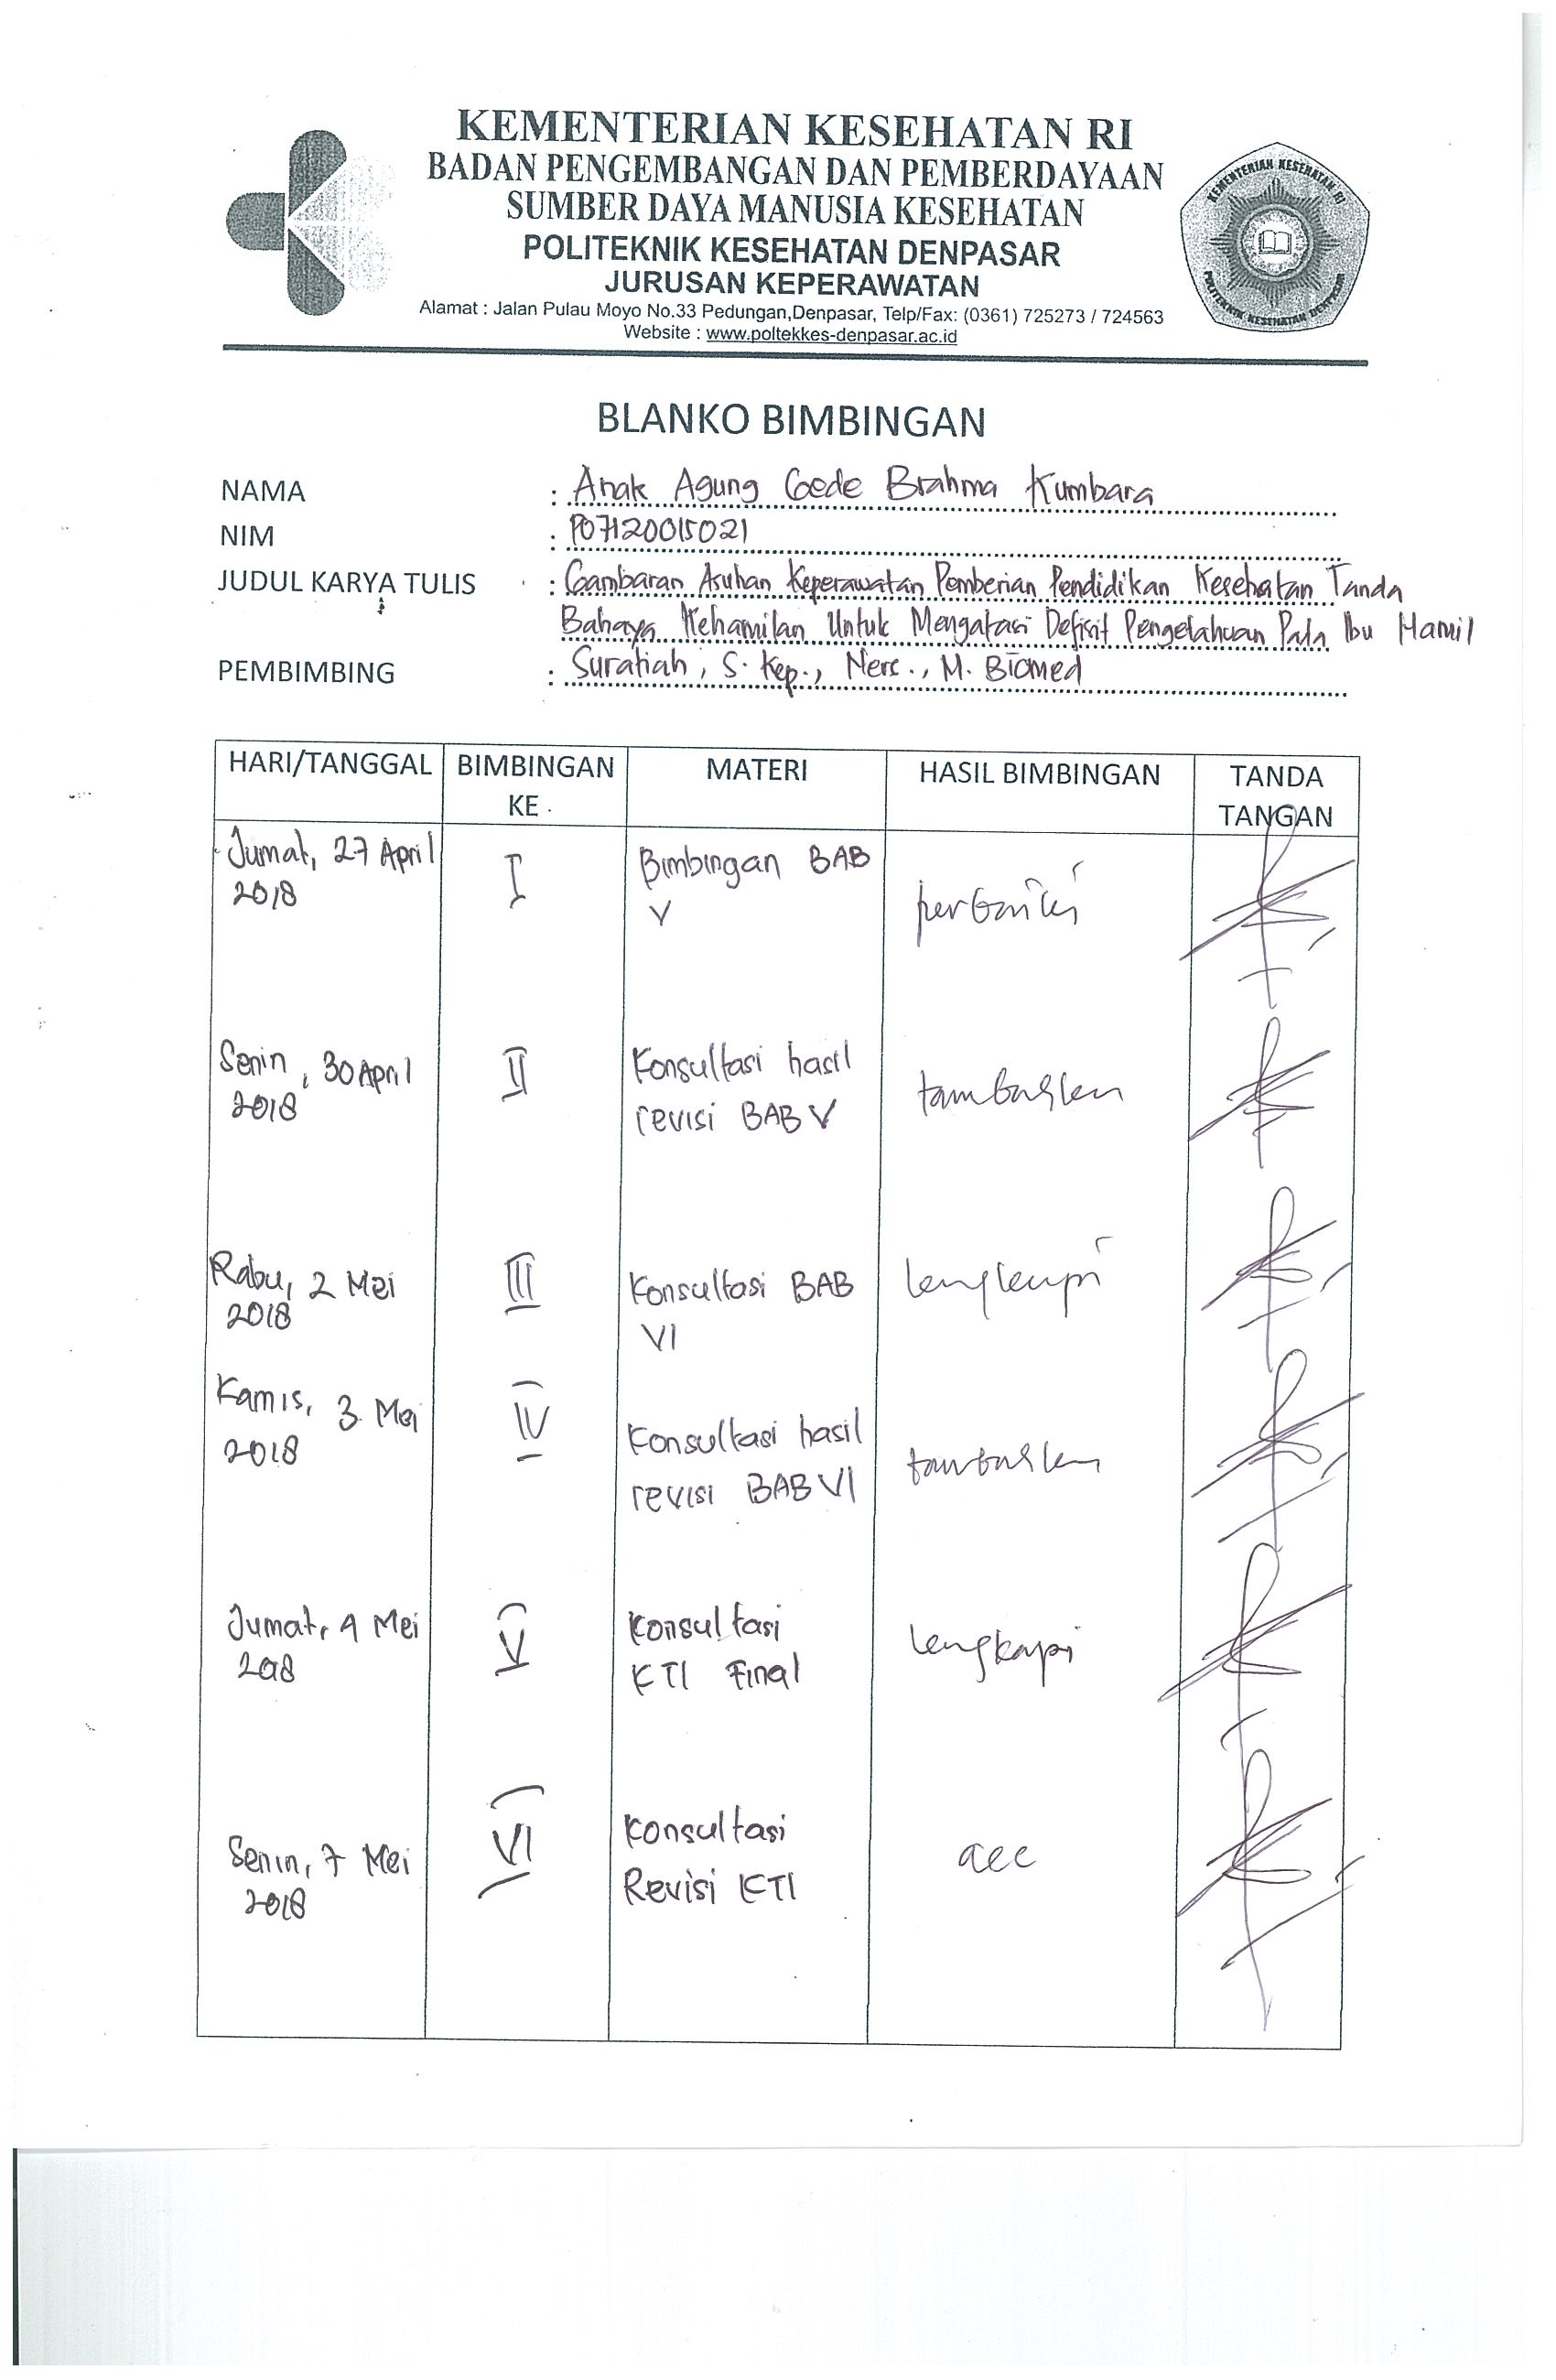 KEMENTERIAN KESEHATAN RI
BADAN PENGEMBANGAN DAN PEMBERDAYAAN
SUMBER DAYA MANUSIA KESEHATAN
POLITEKNIK KESEHATAN DENPASAR
JURUSAN KEPERAWATAN
Alamat : Jalan Pulau Moyo No.33 Pedungan,Denpasar, Telp/Fax: (0361) 725273 / 724563
Website : www.poltekkes-denpasar.ac.id
KEMENTERIAN KESEHATAN RI
POLITEKNIK KESEHATAN DENPASAR
BLANKO BIMBINGAN
NAMA : Anak Agung Gede Brahma Kumbara
NIM : P07120015021
JUDUL KARYA TULIS : Gambaran Asuhan Keperawatan Pemberian Pendidikan Kesehatan Tanda
Bahaya Kehamilan Untuk Mengatasi Defisit Pengetahuan Pada Ibu Hamil
PEMBIMBING : Suratiah, S. Kep., Ners., M. Biomed
HARI/TANGGAL BIMBINGAN KE MATERI HASIL BIMBINGAN TANDA TANGAN
Jumat, 27 April I Bimbingan BAB perbaiki
2018 V
Senin, 30 April II Konsultasi hasil tambahkan
2018 revisi BAB V
Rabu, 2 Mei III Konsultasi BAB lengkapi
2018 VI
Kamis, 3 Mei IV Konsultasi hasil tambahkan
2018 revisi BAB VI
Jumat, 4 Mei V Konsultasi lengkapi
2018 KTI Final
Senin, 7 Mei VI Konsultasi acc
2018 Revisi KTI